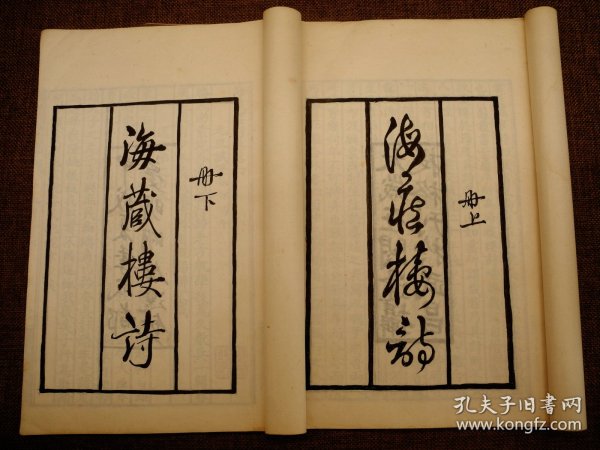 海藏樓詩
册上
海藏樓詩
册下
孔夫子旧书网
www.kongfz.com